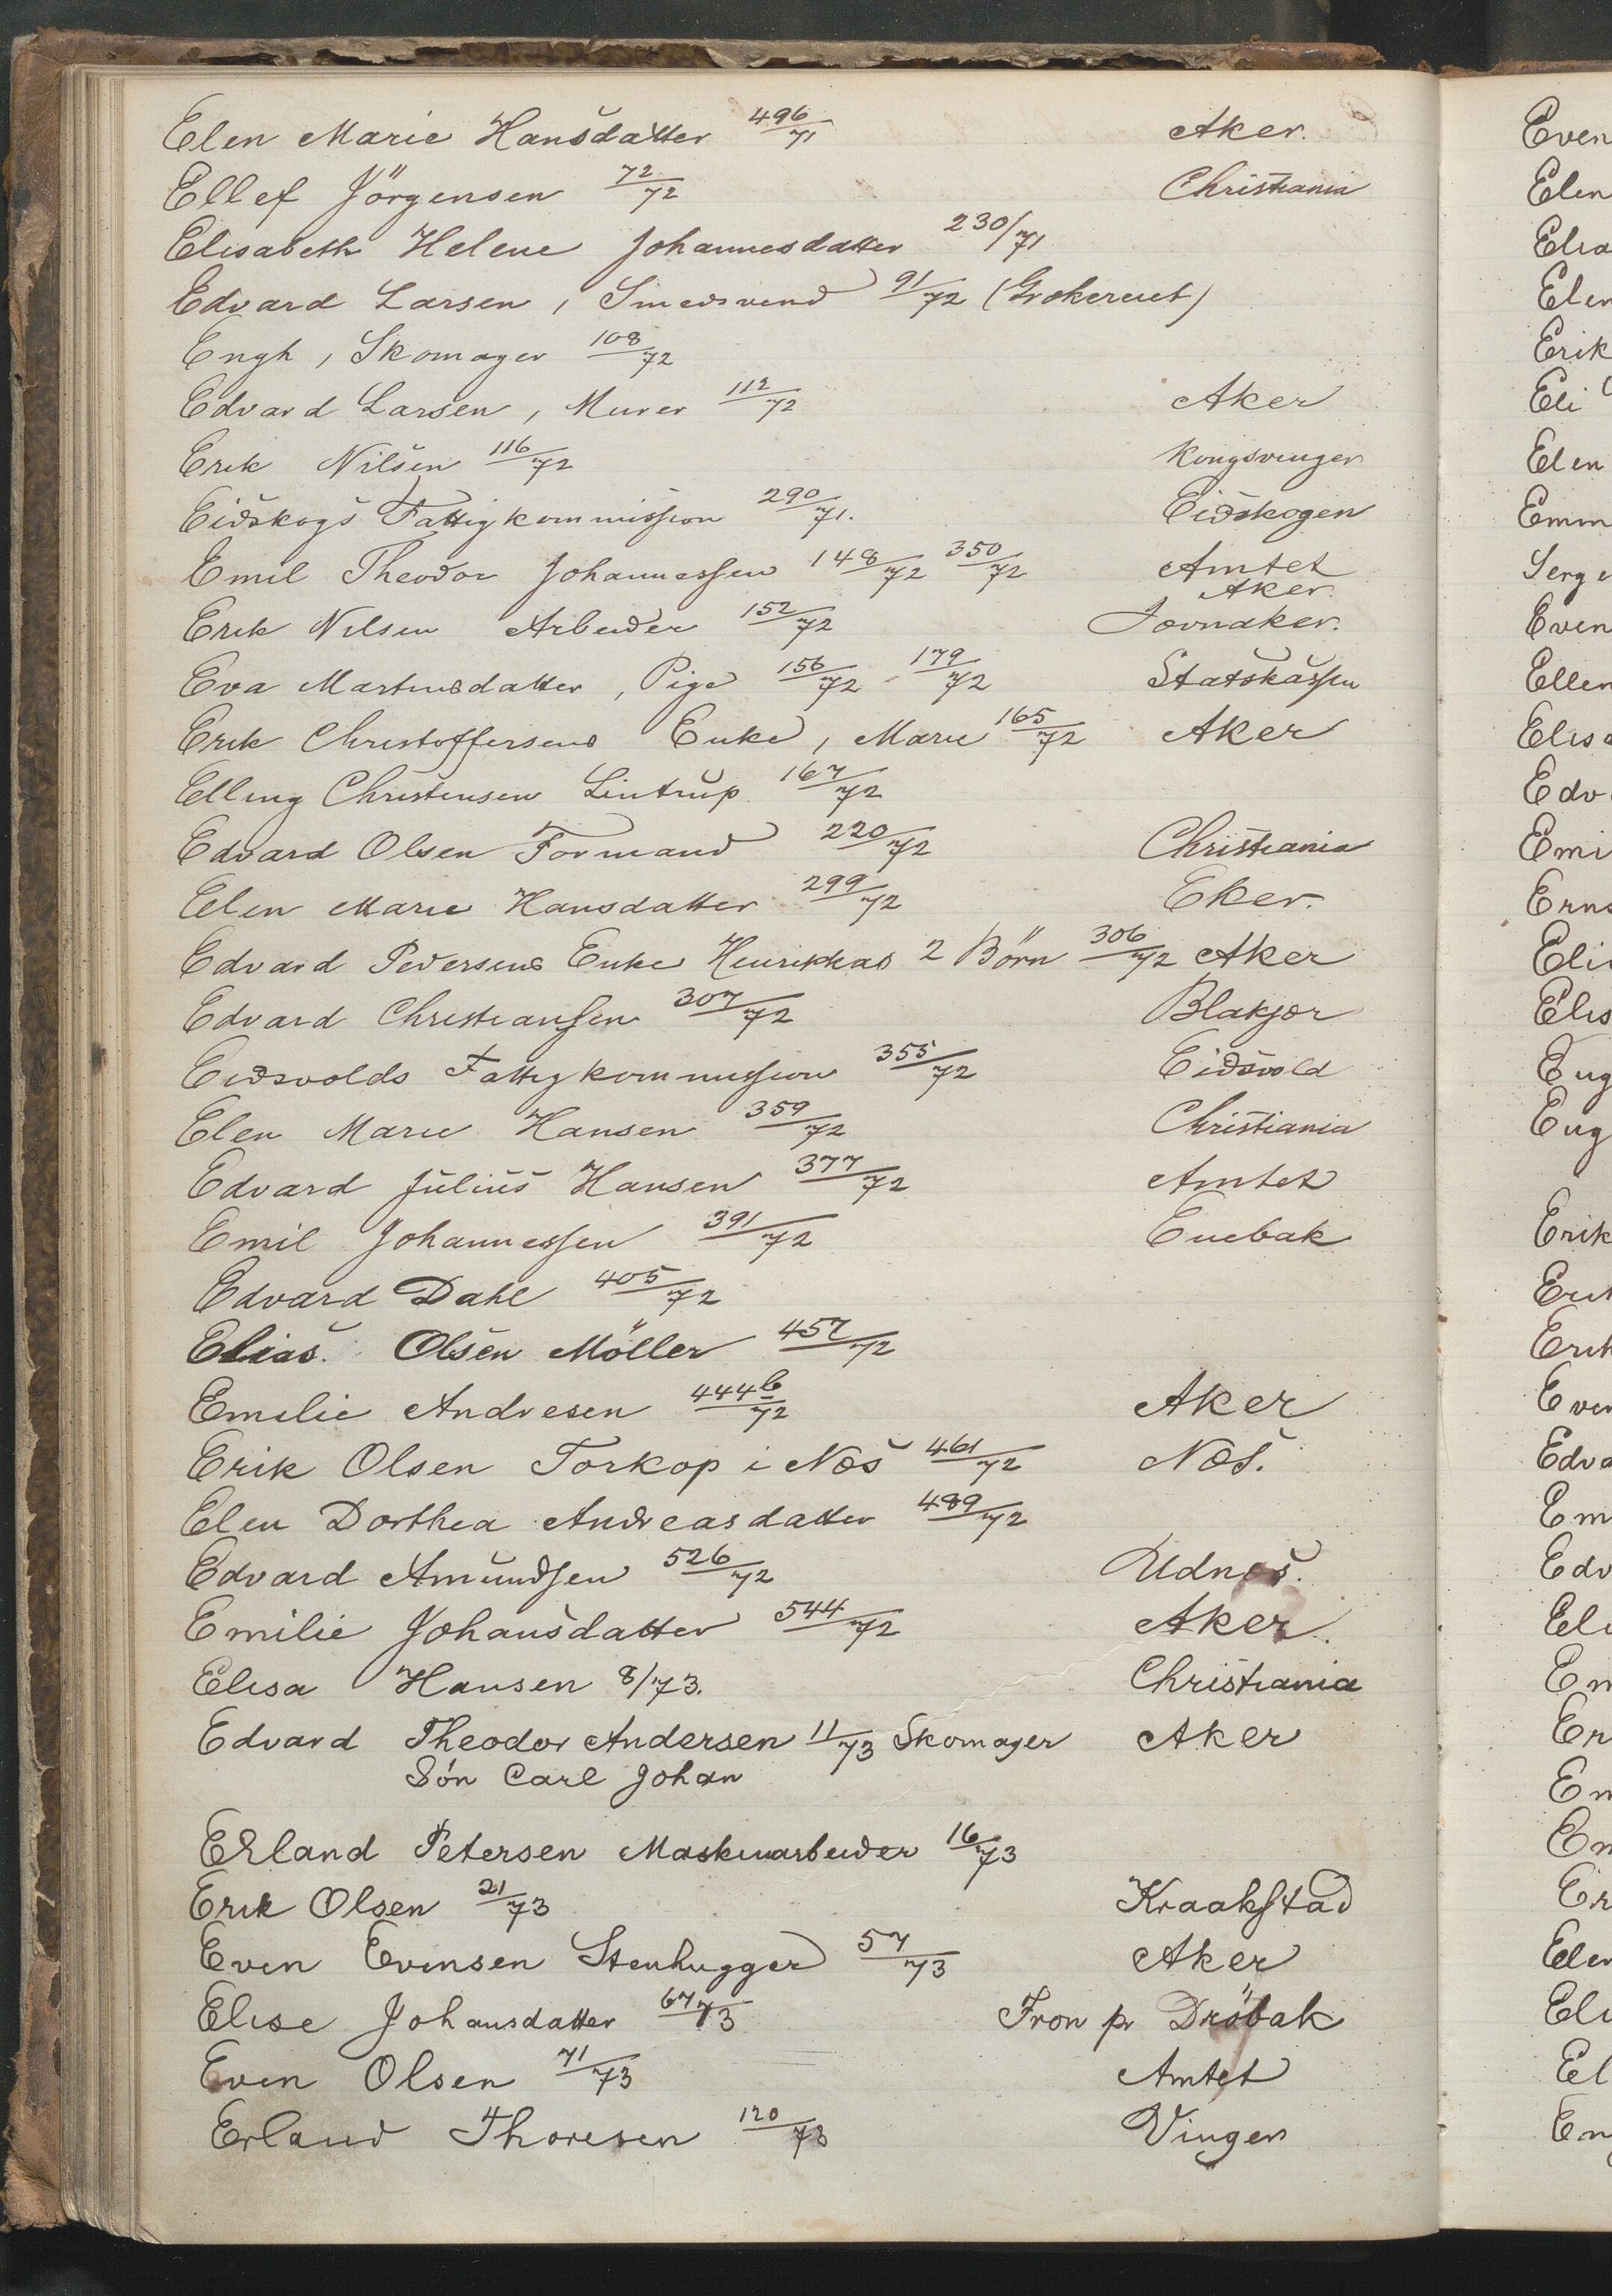 Elen Marie Hansdatter 496/71 Aker.
Ellef Jörgensen 72/72 Christiania
Elisabeth Helene Johannesdatter 230/71
Edvard Larsen, Smedsvend 91/72
Engh, Skomager 108/72
Edvard Larsen, Murer 112/72 Aker
Erik Nilsen 116/72 Kongsvinger
Eidskogs Fattigkommission 290/71. Eidskogen
Emil Theodor Johannessen 148/72 350/72 Amtet
Aker.
Erik Nilsen Arbeider 152/72 Jævnaker.
Eva Martinsdatter, Pige 156/72 - 179/72 Statskassen
Erik Christoffersens Enke, Marie 165/72 Aker
Elling Christensen Lintrup 167/72
Edvard Olsen Formand 220/72 Christiania
Elen Marie Hansdatter 299/72 Eker.
Edvard Pedersens Enke Henrikkas 2 Börn 306/72 Aker
Edvard Christiansen 307/72 Blakjær
Eidsvolds Fattigkommission 355/72 Eidsvold
Elen Marie Hansen 359/72 Christiania
Edvard Julius Hansen 377/72 Amtet
Emil Johannessen 391/72 Enebak
Edvard Dahl 405/72
Elias Olsen Möller 457/72
Emilie Andresen 444b/72 Aker
Erik Olsen Torkop i Næs 461/72 Næs.
Elen Dorthea Andreasdatter 489/72
Edvard Amundsen 526/72 Udnæs.
Emilie Johansdatter 544/72 Aker.
Elisa Hansen 8/73. Christiania
Edvard Theodor Andersen 11/73 Skomager Aker
Sön Carl Johan
Erland Petersen Maskinarbeider 16/73
Erik Olsen 21/73 Kraakstad
Even Evensen Stenhugger 57/73 Aker
Elise Johansdatter 67/73 Fron pr Dröbak
Even Olsen 71/73 Amtet
Erland Thoresen 120/73 Vinger
Even
Elen
Elen
Erik
Eli
Elen
Emm
Even
Ellen
Elisa
Edv
Emi
Erns
Eli
Elis
Eug
Eug
Erik
Erik
Erik
Even
Edva
Em
Edv
Eli
Em
Er
Em
Em
Er
Elen
Eli
El
Em